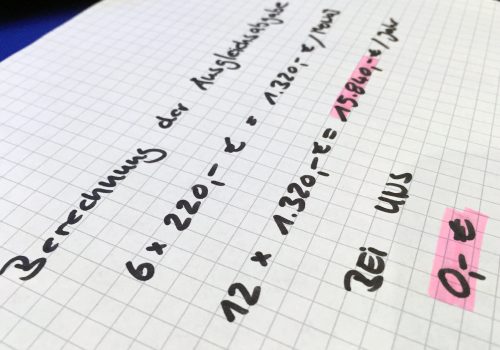 Berechnung der Ausgleichsabgabe
6 x 220,- € = 1.320,- € / Monat
12 x 1.320,- € = 15.840,- € / Jahr
BEi UNS
0,- €